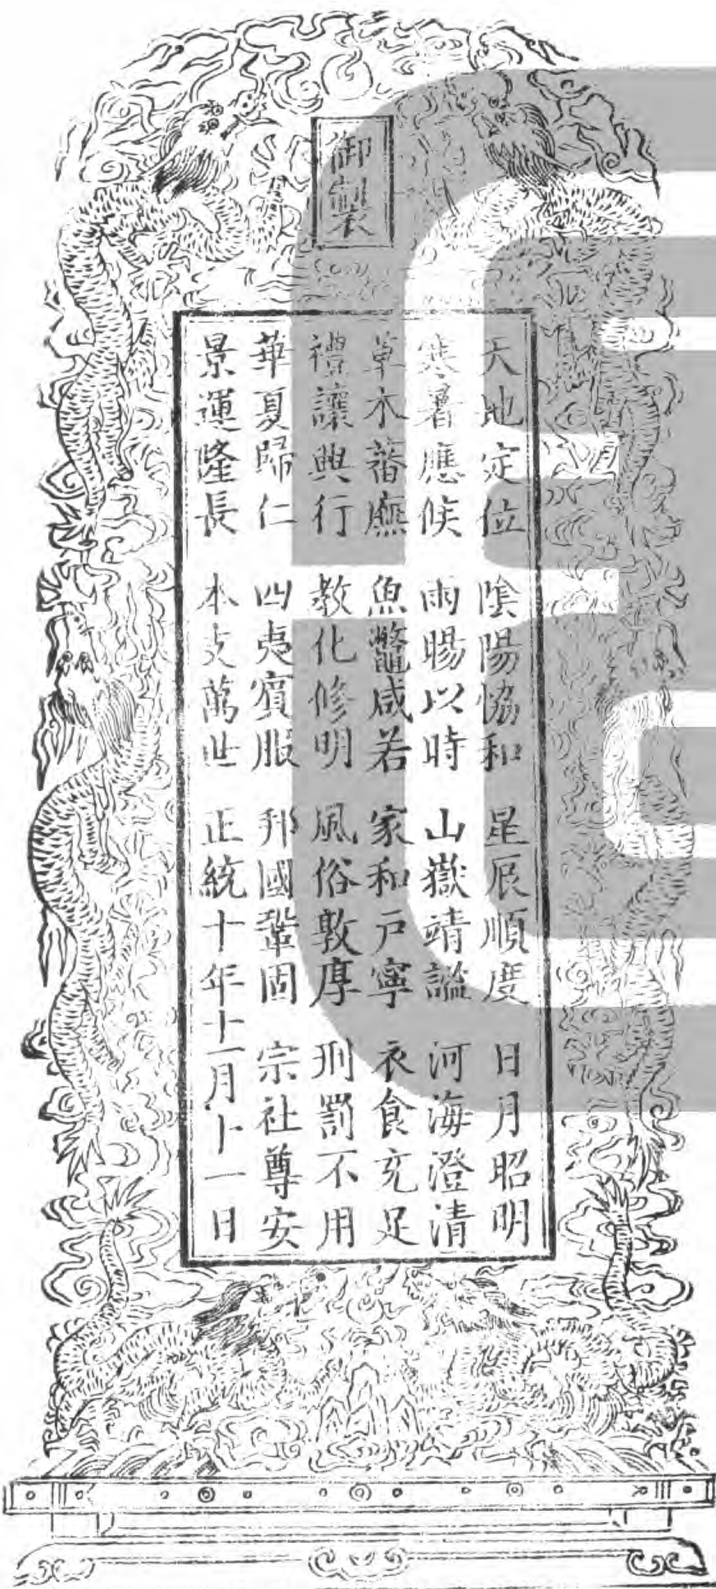 御製
天地定位 陰陽協和 星辰順度 日月昭明
寒暑應候 雨暘以時 山嶽靖謐 河海澄清
草木蕃廡 魚鼈咸若 家和戸寧 衣食充足
禮讓興行 教化修明 風俗敦厚 刑罰不用
華夏歸仁 四夷賓服 邦國鞏固 宗社尊安
景運隆長 本支萬世 正統十年十一月十一日